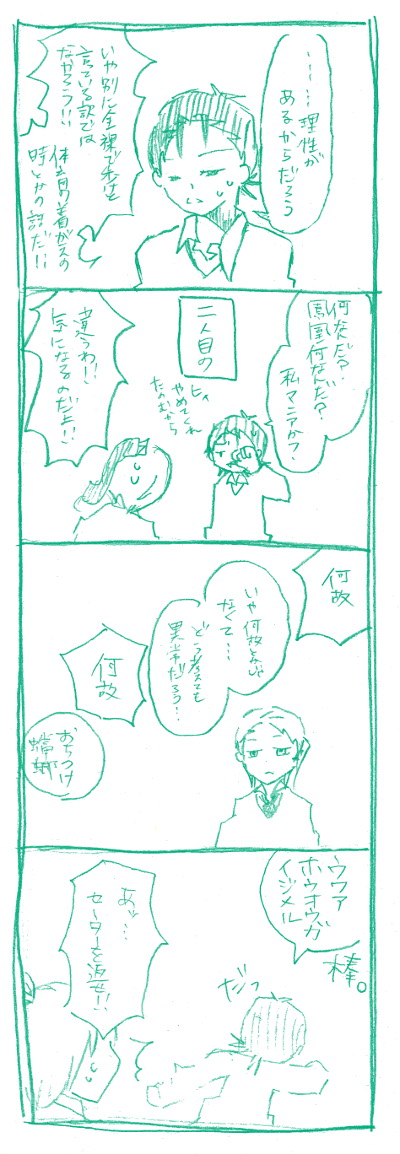 ……理性が
あるからだろう
いや別に全裸で歩けと
言っている訳では
なかろう!!
体育着がえの
時とかの話だ!!
何なんだ?
鳳凰何なんだ?
私マニアか?
二人目の
ヒィ
やめてくれ
たのむから
違うわ!!
気になるのだよ!!
何故
いや何故とかじゃ
なくて…
どう考えても
異常だろう…
何故
おちつけ
蟷螂
ウワァ
ホウオウガ
イジメル
棒。
だっ
あッ…
セーターを返せ!!